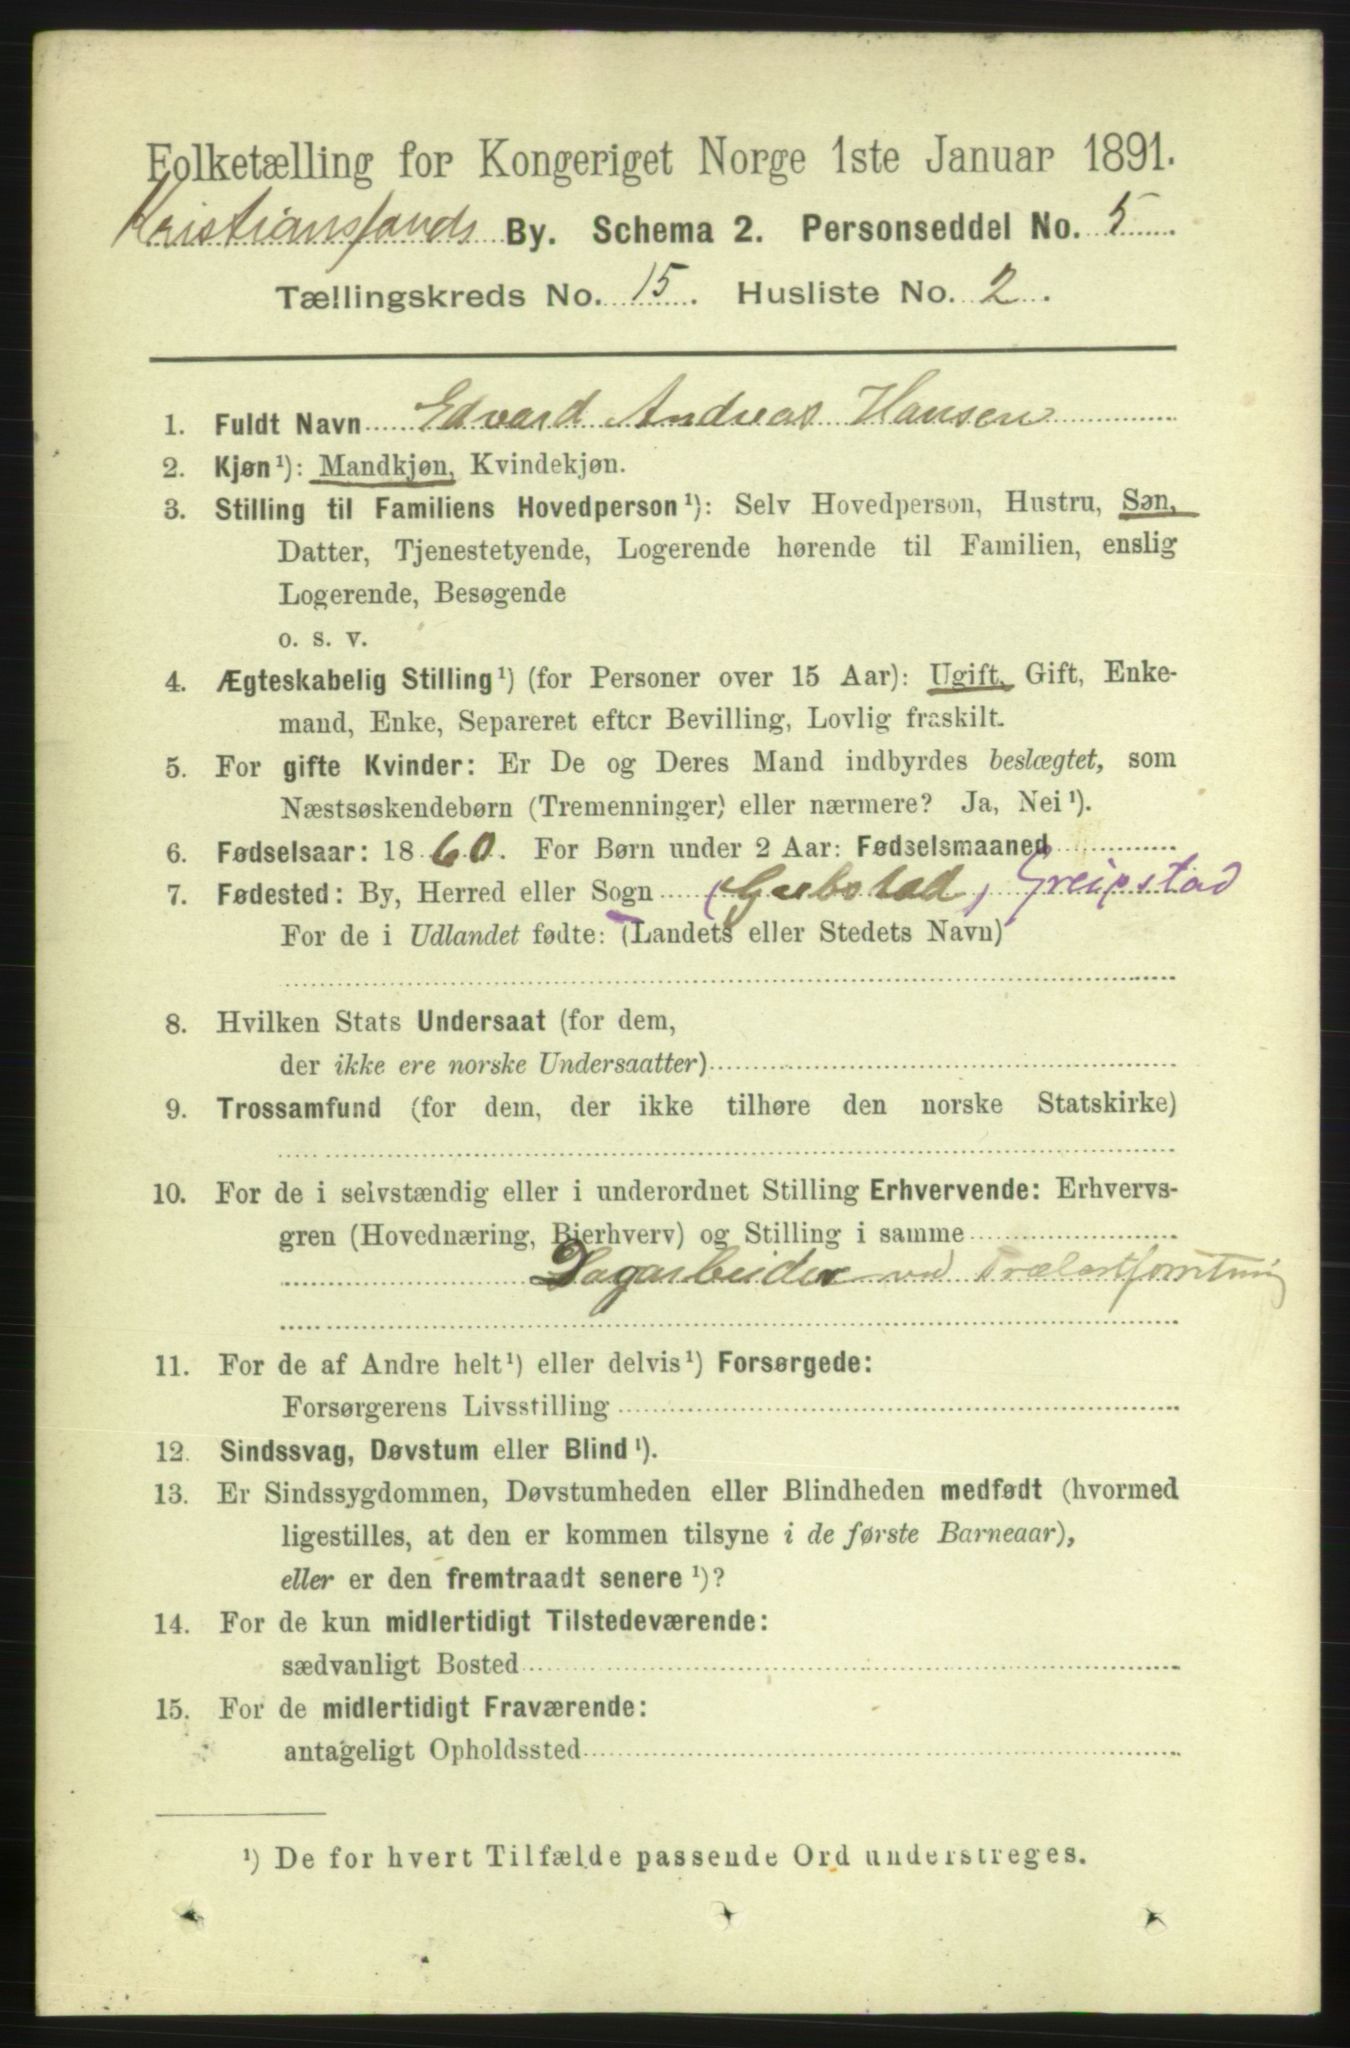 Folketælling for Kongeriget Norge 1ste Januar 1891.
Kristianssands By. Schema 2. Personseddel No. 5
Tællingskreds No. 15. Husliste No. 2.
1. Fuldt Navn Edvard Andreas Hansen
2. Kjøn ¹): Mandkjøn, Kvindekjøn.
3. Stilling til Familiens Hovedperson ¹): Selv Hovedperson, Hustru, Søn,
Datter, Tjenestetyende, Logerende hørende til Familien, enslig
Logerende, Besøgende
o. s. v.
4. Ægteskabelig Stilling ¹) (for Personer over 15 Aar): Ugift, Gift, Enke-
mand, Enke, Separeret efter Bevilling, Lovlig fraskilt.
5. For gifte Kvinder: Er De og Deres Mand indbyrdes beslægtet, som
Næstsøskendebørn (Tremenninger) eller nærmere? Ja, Nei ¹).
6. Fødselsaar: 1860. For Børn under 2 Aar: Fødselsmaaned
7. Fødested: By, Herred eller Sogn (Greibstad) Greipstad
For de i Udlandet fødte: (Landets eller Stedets Navn)
8. Hvilken Stats Undersaat (for dem,
der ikke ere norske Undersaatter)
9. Trossamfund (for dem, der ikke tilhøre den norske Statskirke)
10. For de i selvstændig eller i underordnet Stilling Erhvervende: Erhvervs-
gren (Hovednæring, Bierhverv) og Stilling i samme
Dagarbeider ved Trælastforretning
11. For de af Andre helt ¹) eller delvis ¹) Forsørgede:
Forsørgerens Livsstilling
12. Sindssvag, Døvstum eller Blind ¹).
13. Er Sindssygdommen, Døvstumheden eller Blindheden medfødt (hvormed
ligestilles, at den er kommen tilsyne i de første Barneaar),
eller er den fremtraadt senere ¹)?
14. For de kun midlertidigt Tilstedeværende:
sædvanligt Bosted
15. For de midlertidigt Fraværende:
antageligt Opholdssted
¹) De for hvert Tilfælde passende Ord understreges.